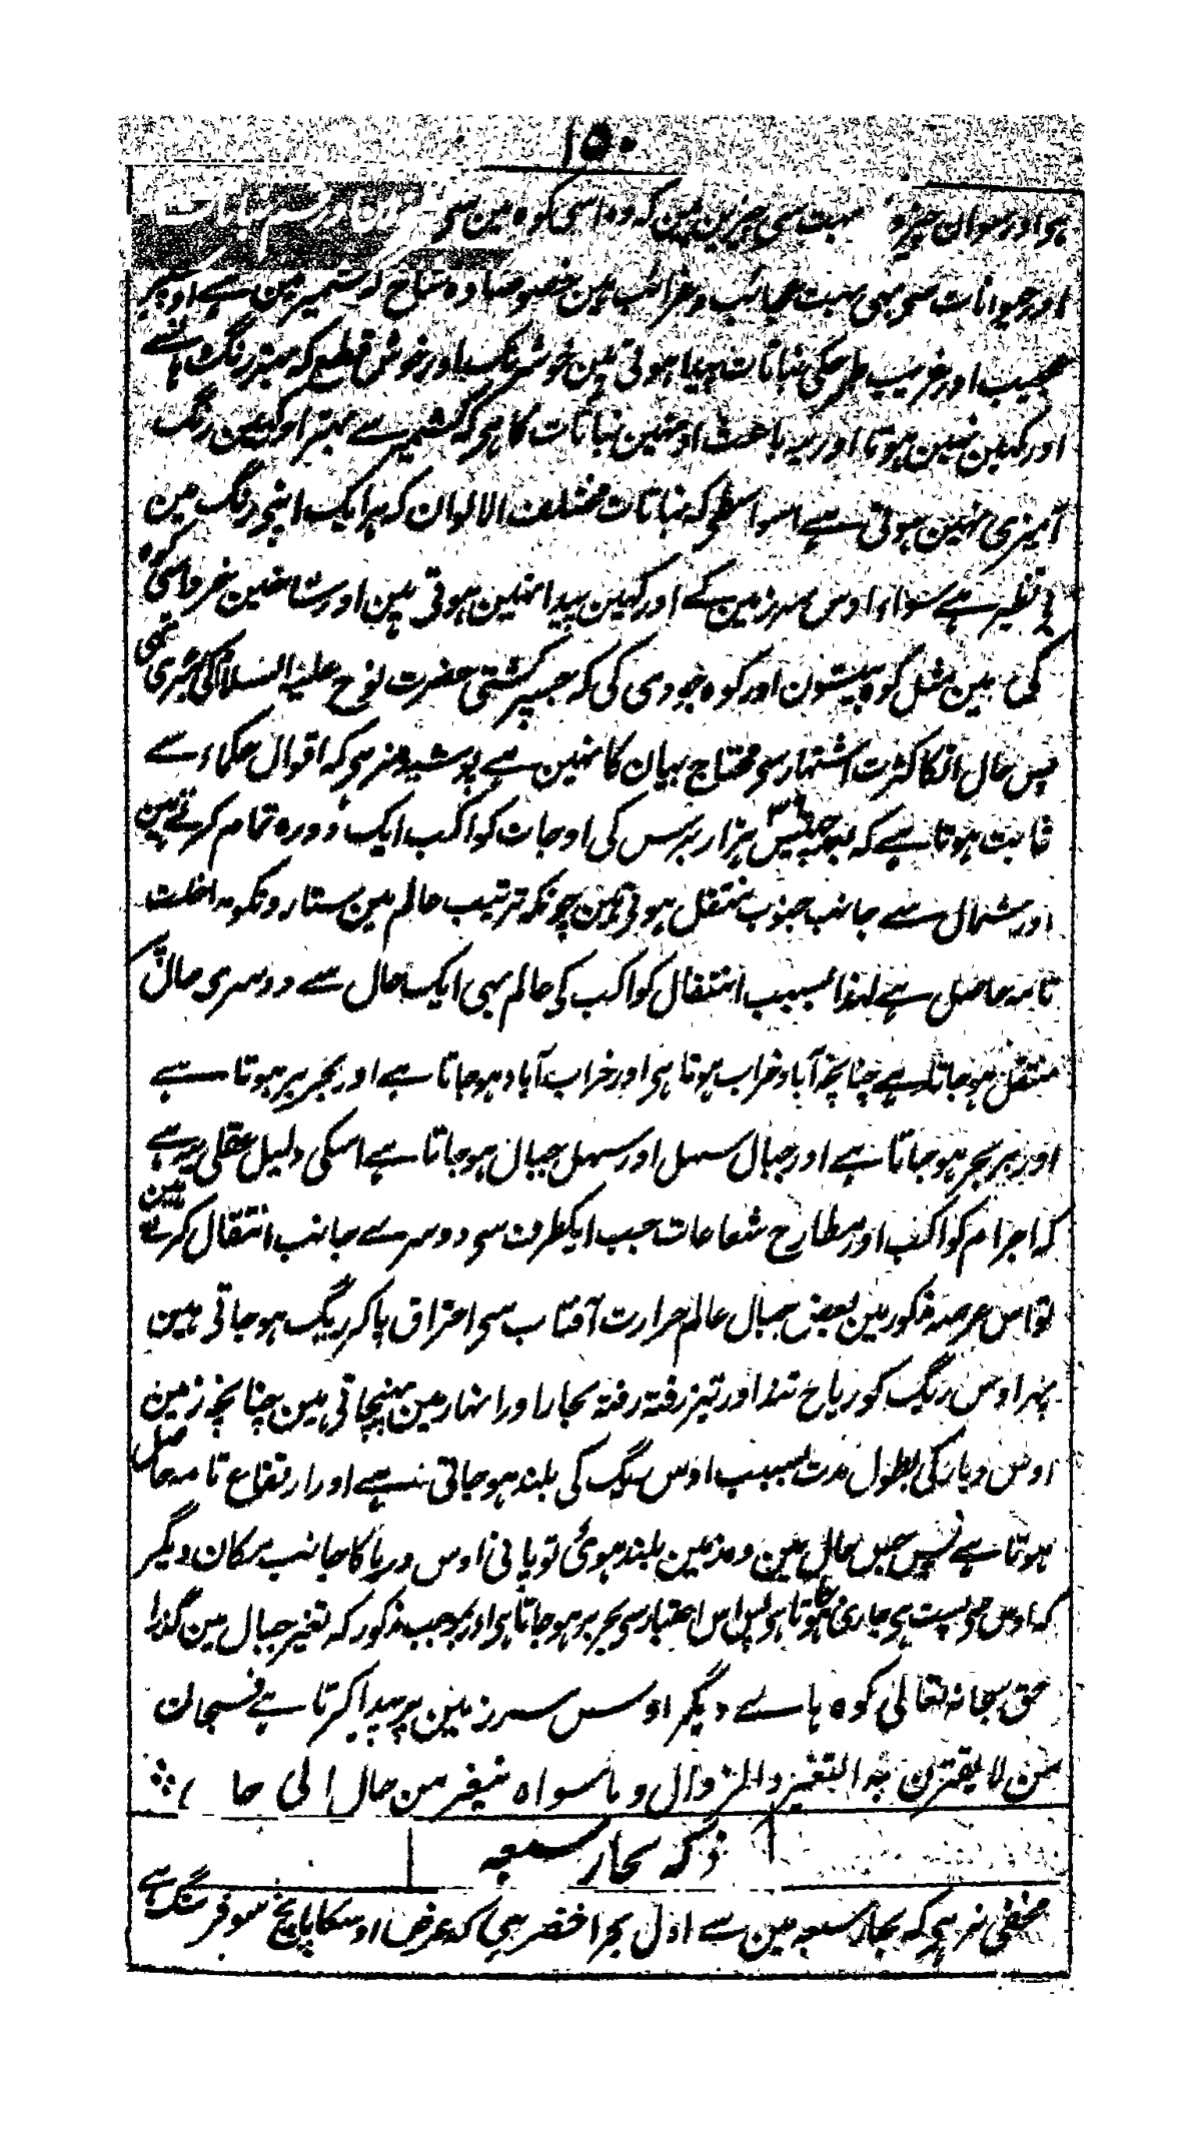 ۱۵۰
ہی اور سوان چیزونکے بہت سی چیزین ہین کہ وہ اسی کوہ مین سی
اور حیوانات سی بہی بہت عجائب و غرائب ہین خصوصاً وہ شاخ کہ کشمیر مین ہے اوسپر
عجیب اور غریب طرحکی نباتات پیدا ہوتی ہین خوشرنگ اور خوش قطع کہ سبز رنگ
اور کہین نہین ہوتا اور یہ باعث اونہین نباتات کا ہی کہ کشمیر سے بہتر اور کہین رنگ
آمیزی نہین ہوتی ہے اسواسطی کہ نباتات مختلف الالوان کہ ہر ایک اپنی رنگ مین
بی نظیر ہے سواے اوس سرزمین کے اور کہین پیدا نہین ہوتی ہین اور شاخین خرد اسی کوہ
کی ہین مثل کوہ بیستون اور کوہ جودی کی کہ جسپر کشتی حضرت نوح علیہ السلام کی ٹہری تہی
پس حال انکا کثرت اشتہار سی محتاج بیان کا نہین ہے پوشیدہ نرہی کہ اقوال حکماء سے
ثابت ہوتا ہے کہ بعد چھتیس ۳۶ ہزار برس کی اوجات کواکب ایک دورہ تمام کرتے ہین
اور شمال سے جانب جنوب منتقل ہوتی ہین چونکہ ترتیب عالم مین ستارونکو مداخلت
تامہ حاصل ہے لہذا بسبب انتقال کواکب کی عالم بہی ایک حال سے دوسری حال پر
منتقل ہو جاتا ہے چنانچہ آباد خراب ہوتا ہی اور خراب آباد ہو جاتا ہے اور بحر بر ہوتا ہے
اور بر بحر ہو جاتا ہے اور جبال سہل اور سہل جبال ہو جاتا ہے اسکی دلیل عقلی یہ ہے
کہ اجرام کواکب اور مطارح شعاعات جب ایکطرف سی دوسرے جانب انتقال کرتے ہین
تو اس عرصہ مذکور مین بعض جبال عالم حرارت آفتاب سی احتراق پاکر ریگ ہو جاتی ہین
پہر اوس ریگ کو ریاح تند اور تیز رفتہ رفتہ بحار اور انہار مین پہنچاتی ہین چنانچہ زمین
اوس دیار کی بطول مدت بسبب اوس ریگ کی بلند ہو جاتی ہے اور ارتفاع تامہ حاصل
ہوتا ہے پس جس حال مین وہ زمین بلند ہوئی تو پانی اوس دریا کا جانب مکان دیگر
کہ اوس سی پست ہی جاری ہوتا ہی پس اس اعتبار سی بحر بر ہو جاتا ہی اور بموجب مذکور کہ تغیر جبال مین گذرا
حق سبحانہ تعالی کوہ ہاے دیگر اوس سرزمین پر پیدا کرتا ہے فسبحان
من لا یقترن بہ التغیر والزوال و ماسواہ یتغیر من حال الی حال
ذکر بحار سبعہ
مخفی نرہی کہ بحار سبعہ مین سے اول بحر اخضر ہی کہ عرض اوسکا پانچ سو فرسنگ ہے